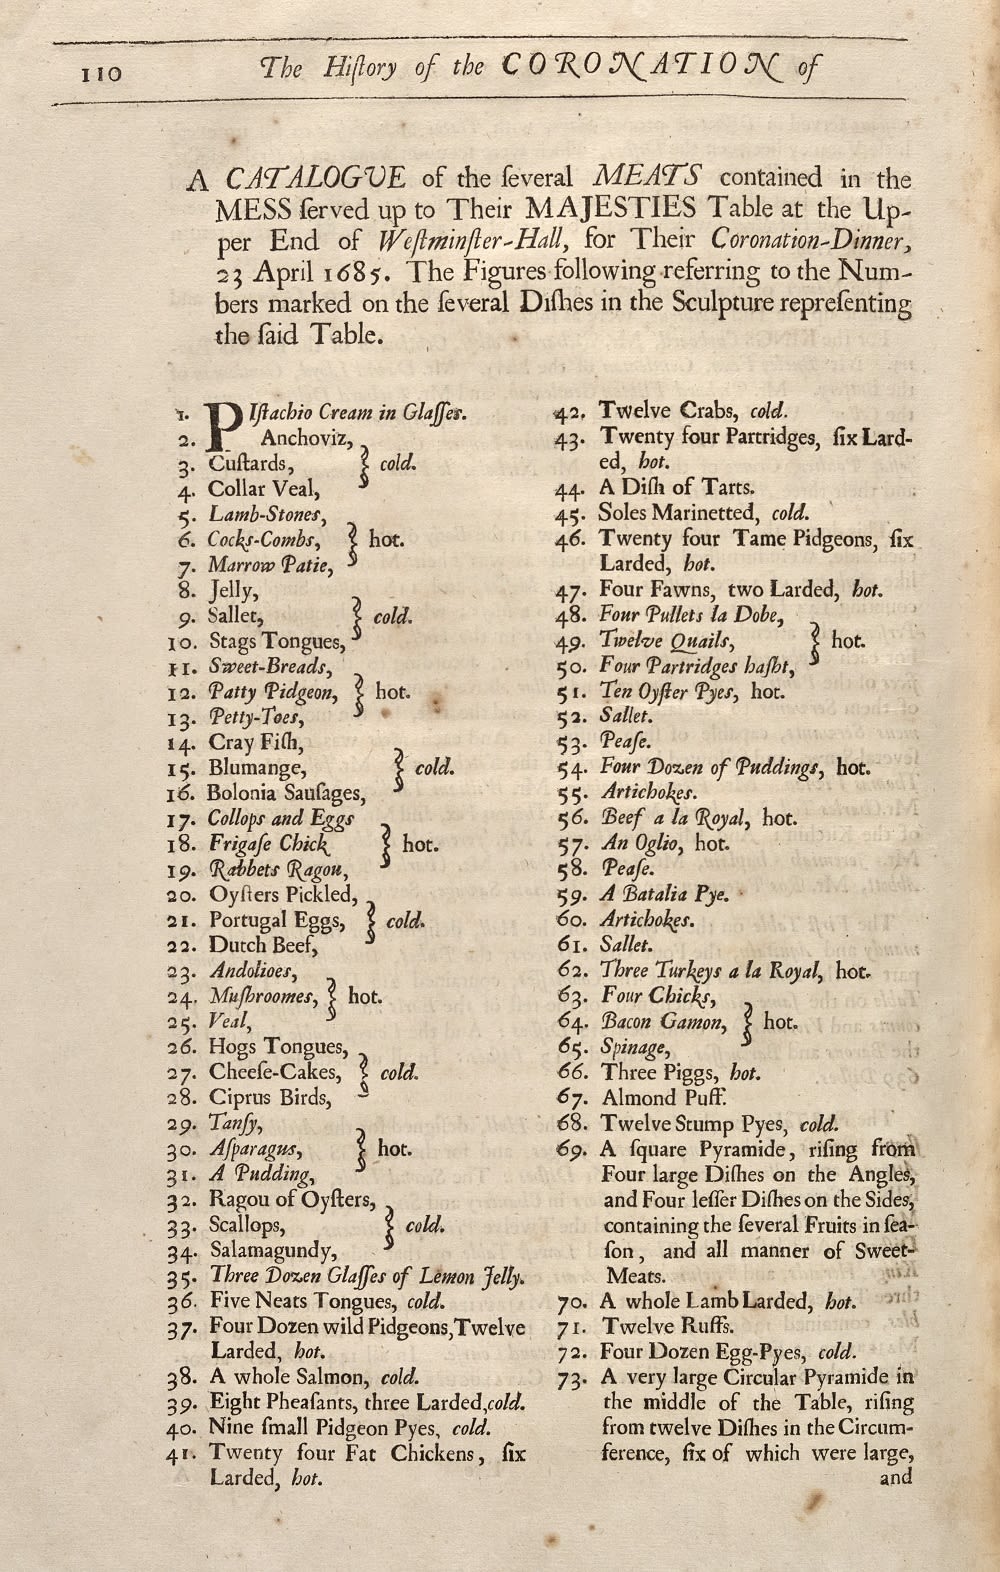 110 The Hiſtory of the CORONATION of
A CATALOGUE of the ſeveral MEATS contained in the
MESS ſerved up to Their MAJESTIES Table at the Up-
per End of Weſtminſter-Hall, for Their Coronation-Dinner,
23 April 1685. The Figures following referring to the Num-
bers marked on the ſeveral Diſhes in the Sculpture repreſenting
the ſaid Table.
1. PIſtachio Cream in Glaſſes.
2. Anchoviz,
3. Cuſtards, } cold.
4. Collar Veal,
5. Lamb-Stones,
6. Cocks-Combs, } hot.
7. Marrow Patie,
8. Jelly,
9. Sallet, } cold.
10. Stags Tongues,
11. Sweet-Breads,
12. Patty Pidgeon, } hot.
13. Petty-Toes,
14. Cray Fiſh,
15. Blumange, } cold.
16. Bolonia Sauſages,
17. Collops and Eggs
18. Frigaſe Chick } hot.
19. Rabbets Ragou,
20. Oyſters Pickled,
21. Portugal Eggs, } cold.
22. Dutch Beef,
23. Andolioes,
24. Muſhroomes, } hot.
25. Veal,
26. Hogs Tongues,
27. Cheeſe-Cakes, } cold.
28. Ciprus Birds,
29. Tanſy,
30. Aſparagus, } hot.
31. A Pudding,
32. Ragou of Oyſters,
33. Scallops, } cold.
34. Salamagundy,
35. Three Dozen Glaſſes of Lemon Jelly.
36. Five Neats Tongues, cold.
37. Four Dozen wild Pidgeons, Twelve
Larded, hot.
38. A whole Salmon, cold.
39. Eight Pheaſants, three Larded, cold.
40. Nine ſmall Pidgeon Pyes, cold.
41. Twenty four Fat Chickens, ſix
Larded, hot.
42. Twelve Crabs, cold.
43. Twenty four Partridges, ſix Lard-
ed, hot.
44. A Diſh of Tarts.
45. Soles Marinetted, cold.
46. Twenty four Tame Pidgeons, ſix
Larded, hot.
47. Four Fawns, two Larded, hot.
48. Four Pullets la Dobe,
49. Twelve Quails, } hot.
50. Four Partridges haſht,
51. Ten Oyſter Pyes, hot.
52. Sallet.
53. Peaſe.
54. Four Dozen of Puddings, hot.
55. Artichokes.
56. Beef a la Royal, hot.
57. An Oglio, hot.
58. Peaſe.
59. A Batalia Pye.
60. Artichokes.
61. Sallet.
62. Three Turkeys a la Royal, hot.
63. Four Chicks,
64. Bacon Gamon, } hot.
65. Spinage,
66. Three Piggs, hot.
67. Almond Puff.
68. Twelve Stump Pyes, cold.
69. A ſquare Pyramide, riſing from
Four large Diſhes on the Angles,
and Four leſſer Diſhes on the Sides,
containing the ſeveral Fruits in ſea-
ſon, and all manner of Sweet-
Meats.
70. A whole Lamb Larded, hot.
71. Twelve Ruffs.
72. Four Dozen Egg-Pyes, cold.
73. A very large Circular Pyramide in
the middle of the Table, riſing
from twelve Diſhes in the Circum-
ference, ſix of which were large,
and